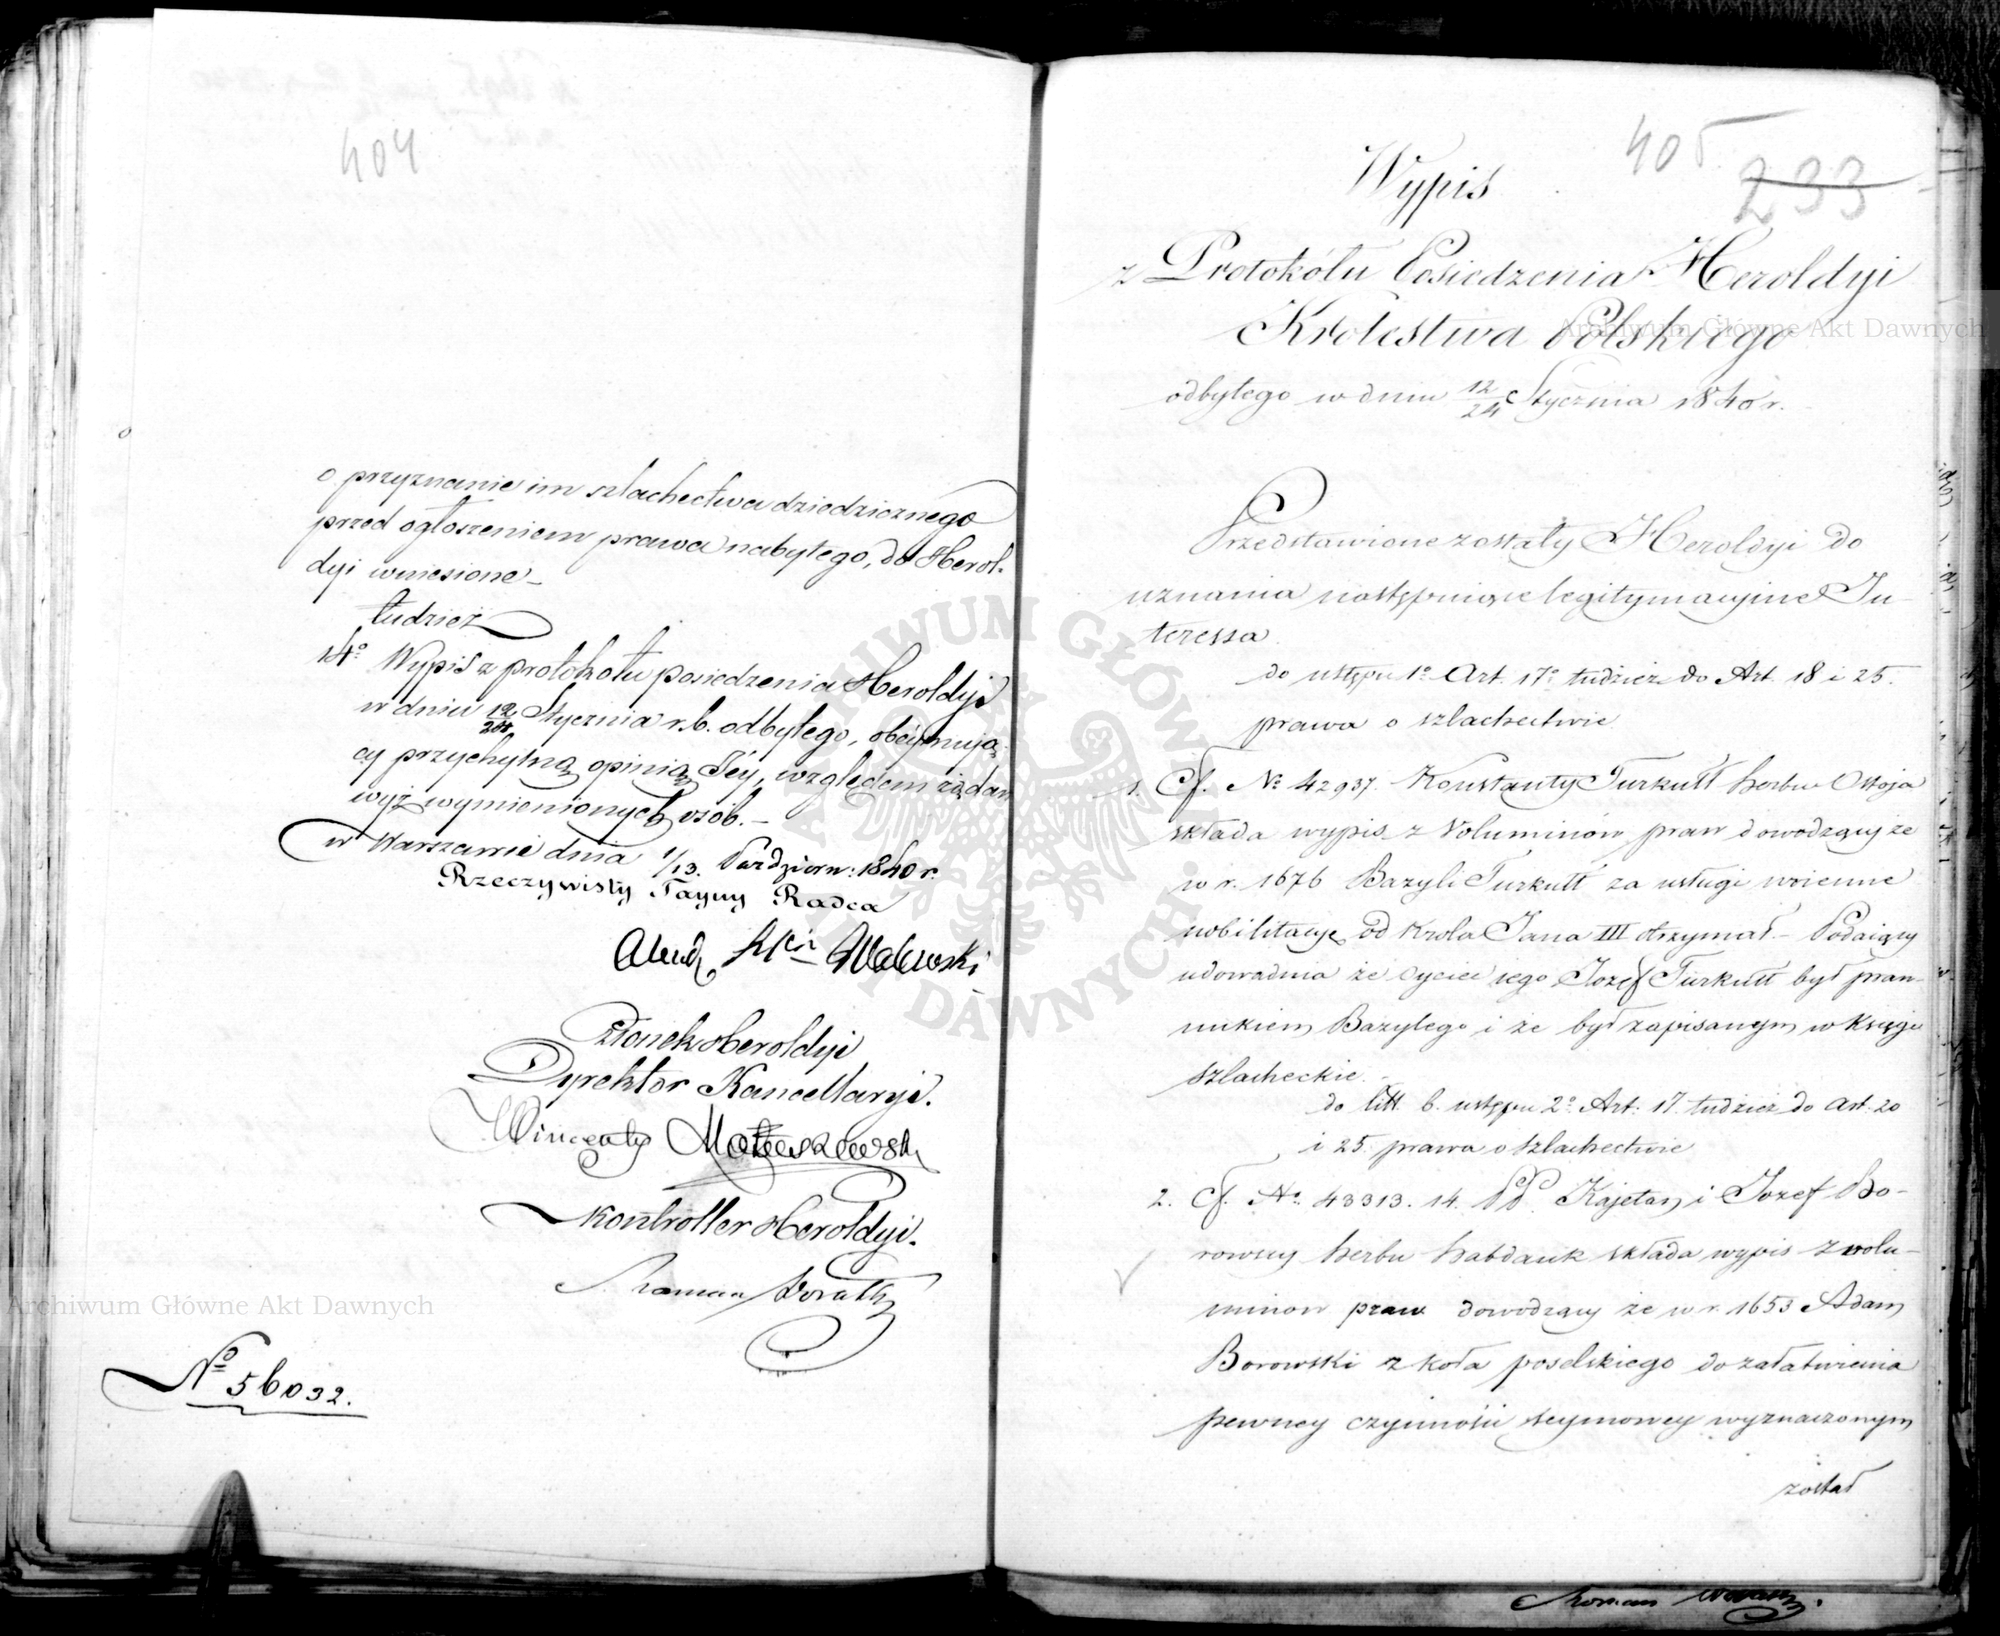 404
o przyznanie im szlachectwa dziedzicznego
przed ogłoszeniem prawa nabytego, do Herol-
dyi wniesione –
tudzież
14° Wypis z protokołu posiedzenia Heroldyi
w dniu 12/24 Stycznia r.b. odbytego, obeymują-
cy przychylną opinią Jéy, względem żądań
wyż wymienionych osób. –
w Warszawie dnia 1/13. Październ: 1840 r.
Rzeczywisty Tayny Radca
Walewski
Członek Heroldyi
Dyrektor Kancellaryi.
Wincenty Matuszewski
Kontroller Heroldyi.
Roman
No 56032.
405
233
Wypis
z Protokółu Posiedzenia Heroldyi
Królestwa Polskiego
odbytego w dniu 12/24 Stycznia 1840 r.
Przedstawione zostały Heroldyi do
uznania następuiące legitymacyjne In-
teressa
do ustępu 1° Art. 17° tudzież do Art. 18 i 25.
prawa o szlachectwie
1. Cf. No 42937. Konstanty Turkułł herbu Ostoja
składa wypis z Voluminów praw dowodzący że
w r. 1676 Bazyli Turkułł za usługi woienne
nobilitacyę od Krola Jana III otrzymał – Podaiący
udowadnia że oyciec iego Jozef Turkułł był praw-
nukiem Bazylego i że był zapisanym w Księgi
szlacheckie. –
do litt. b. ustępu 2° Art: 17. tudzież do art: 20
i 25. prawa o szlachectwie
2. Cf. No. 43313. 14. PP. Kajetan i Jozef Bo-
rowscy herbu habdank składa wypis z wolu-
minow praw dowodzący że w r. 1653 Adam
Borowski z koła poselskiego do załatwienia
pewney czynności seymowey wyznaczonym
został
Roman
Archiwum Główne Akt Dawnych
Archiwum Główne Akt Dawnych
ARCHIWUM GŁÓWNE AKT DAWNYCH